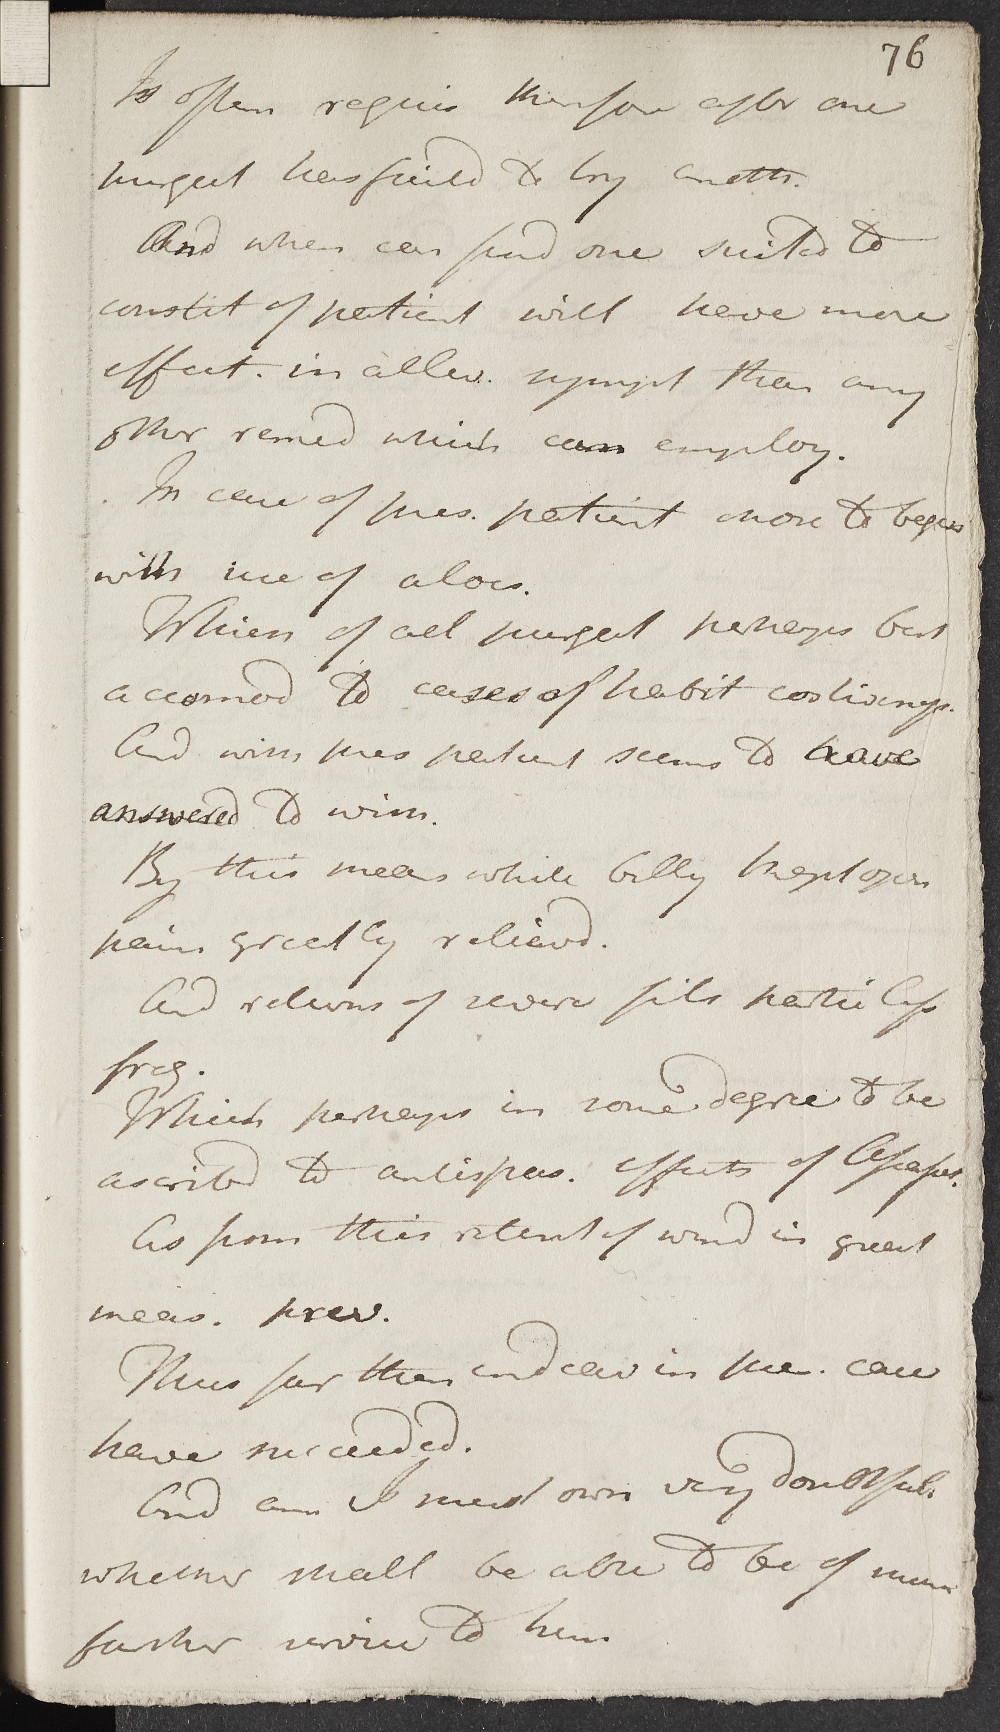 76
Is often requis therefore after one
purgat has faild to try anoth.
And when can find one suited to
constit of patient will have more
effect. in allev. sympt than any
other remed which can employ.
In case of pres. patient chose to begin
with use of aloes.
Which of all purgat perhaps best
accomod to cases of habit costiveness.
And with pres patient seems to have
answered to wish.
By this means while belly kept open
pain greatly relievd.
And returns of severe fits partic less
freq.
Which perhaps in some degree to be
ascribed to antispas. effects of
As from this retent of wind in great
meas. prev.
Thus far then endeav in pres. case
have succeeded.
And am I must own very doubtful.
whether shall be able to be of much
farther service to him